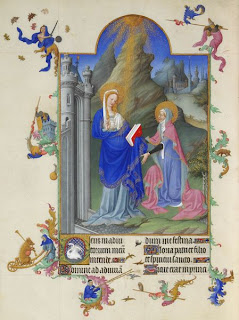 Deus in adiu
torium meum
intende
Domine ad adiuuan
dum me festina
Gloria patri et filio
et spiritui sancto
Sicut erat in prin